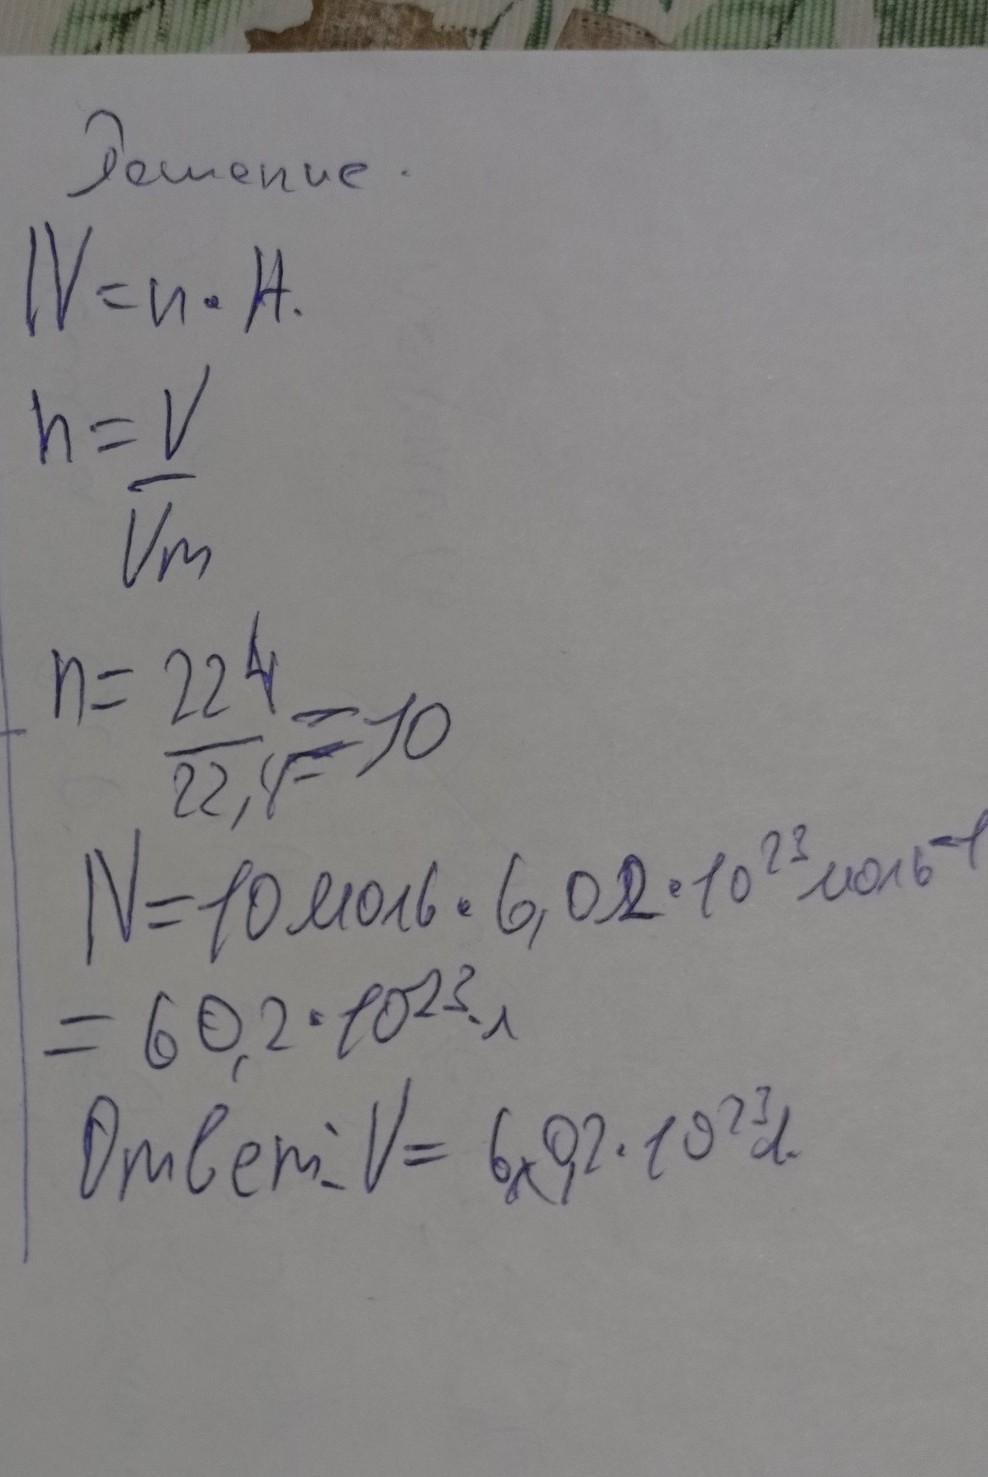 Решение.
N=n·A.
n=V
Vm
n=224
22,4 =10
N=10моль·6,02·10²³моль⁻¹
=60,2·10²³л
Ответ: V= 60,2·10²³л.